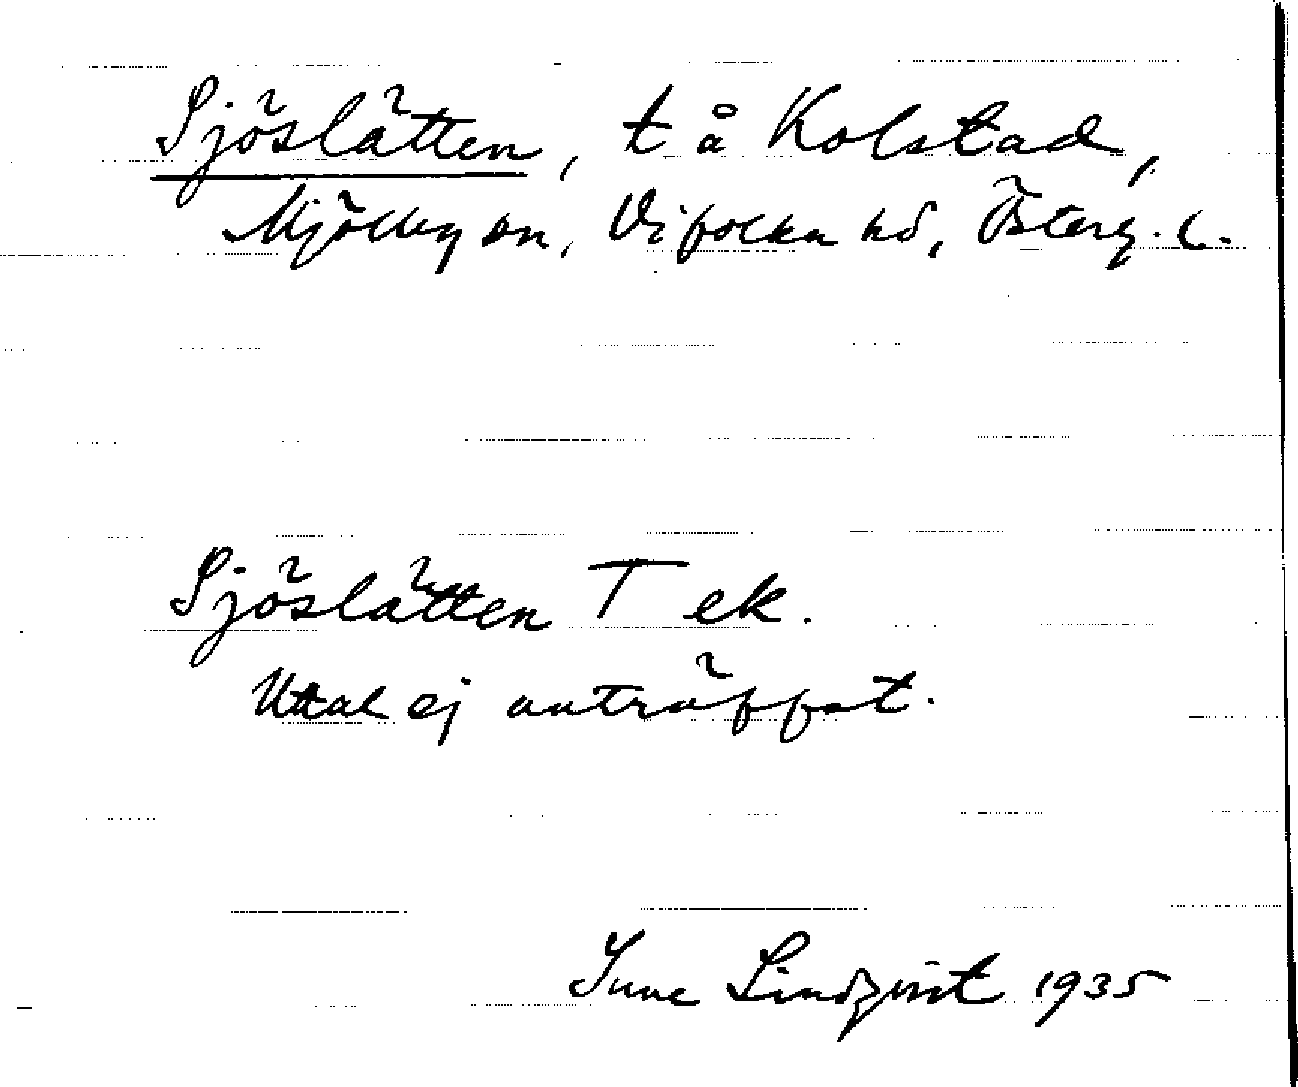 Sjöslätten, t å Kolstad,
Mjölby sn, Vifolka hd, Österg. l.
Sjöslätten T ek.
Uttal ej anträffat.
Sune Lindqvist 1935